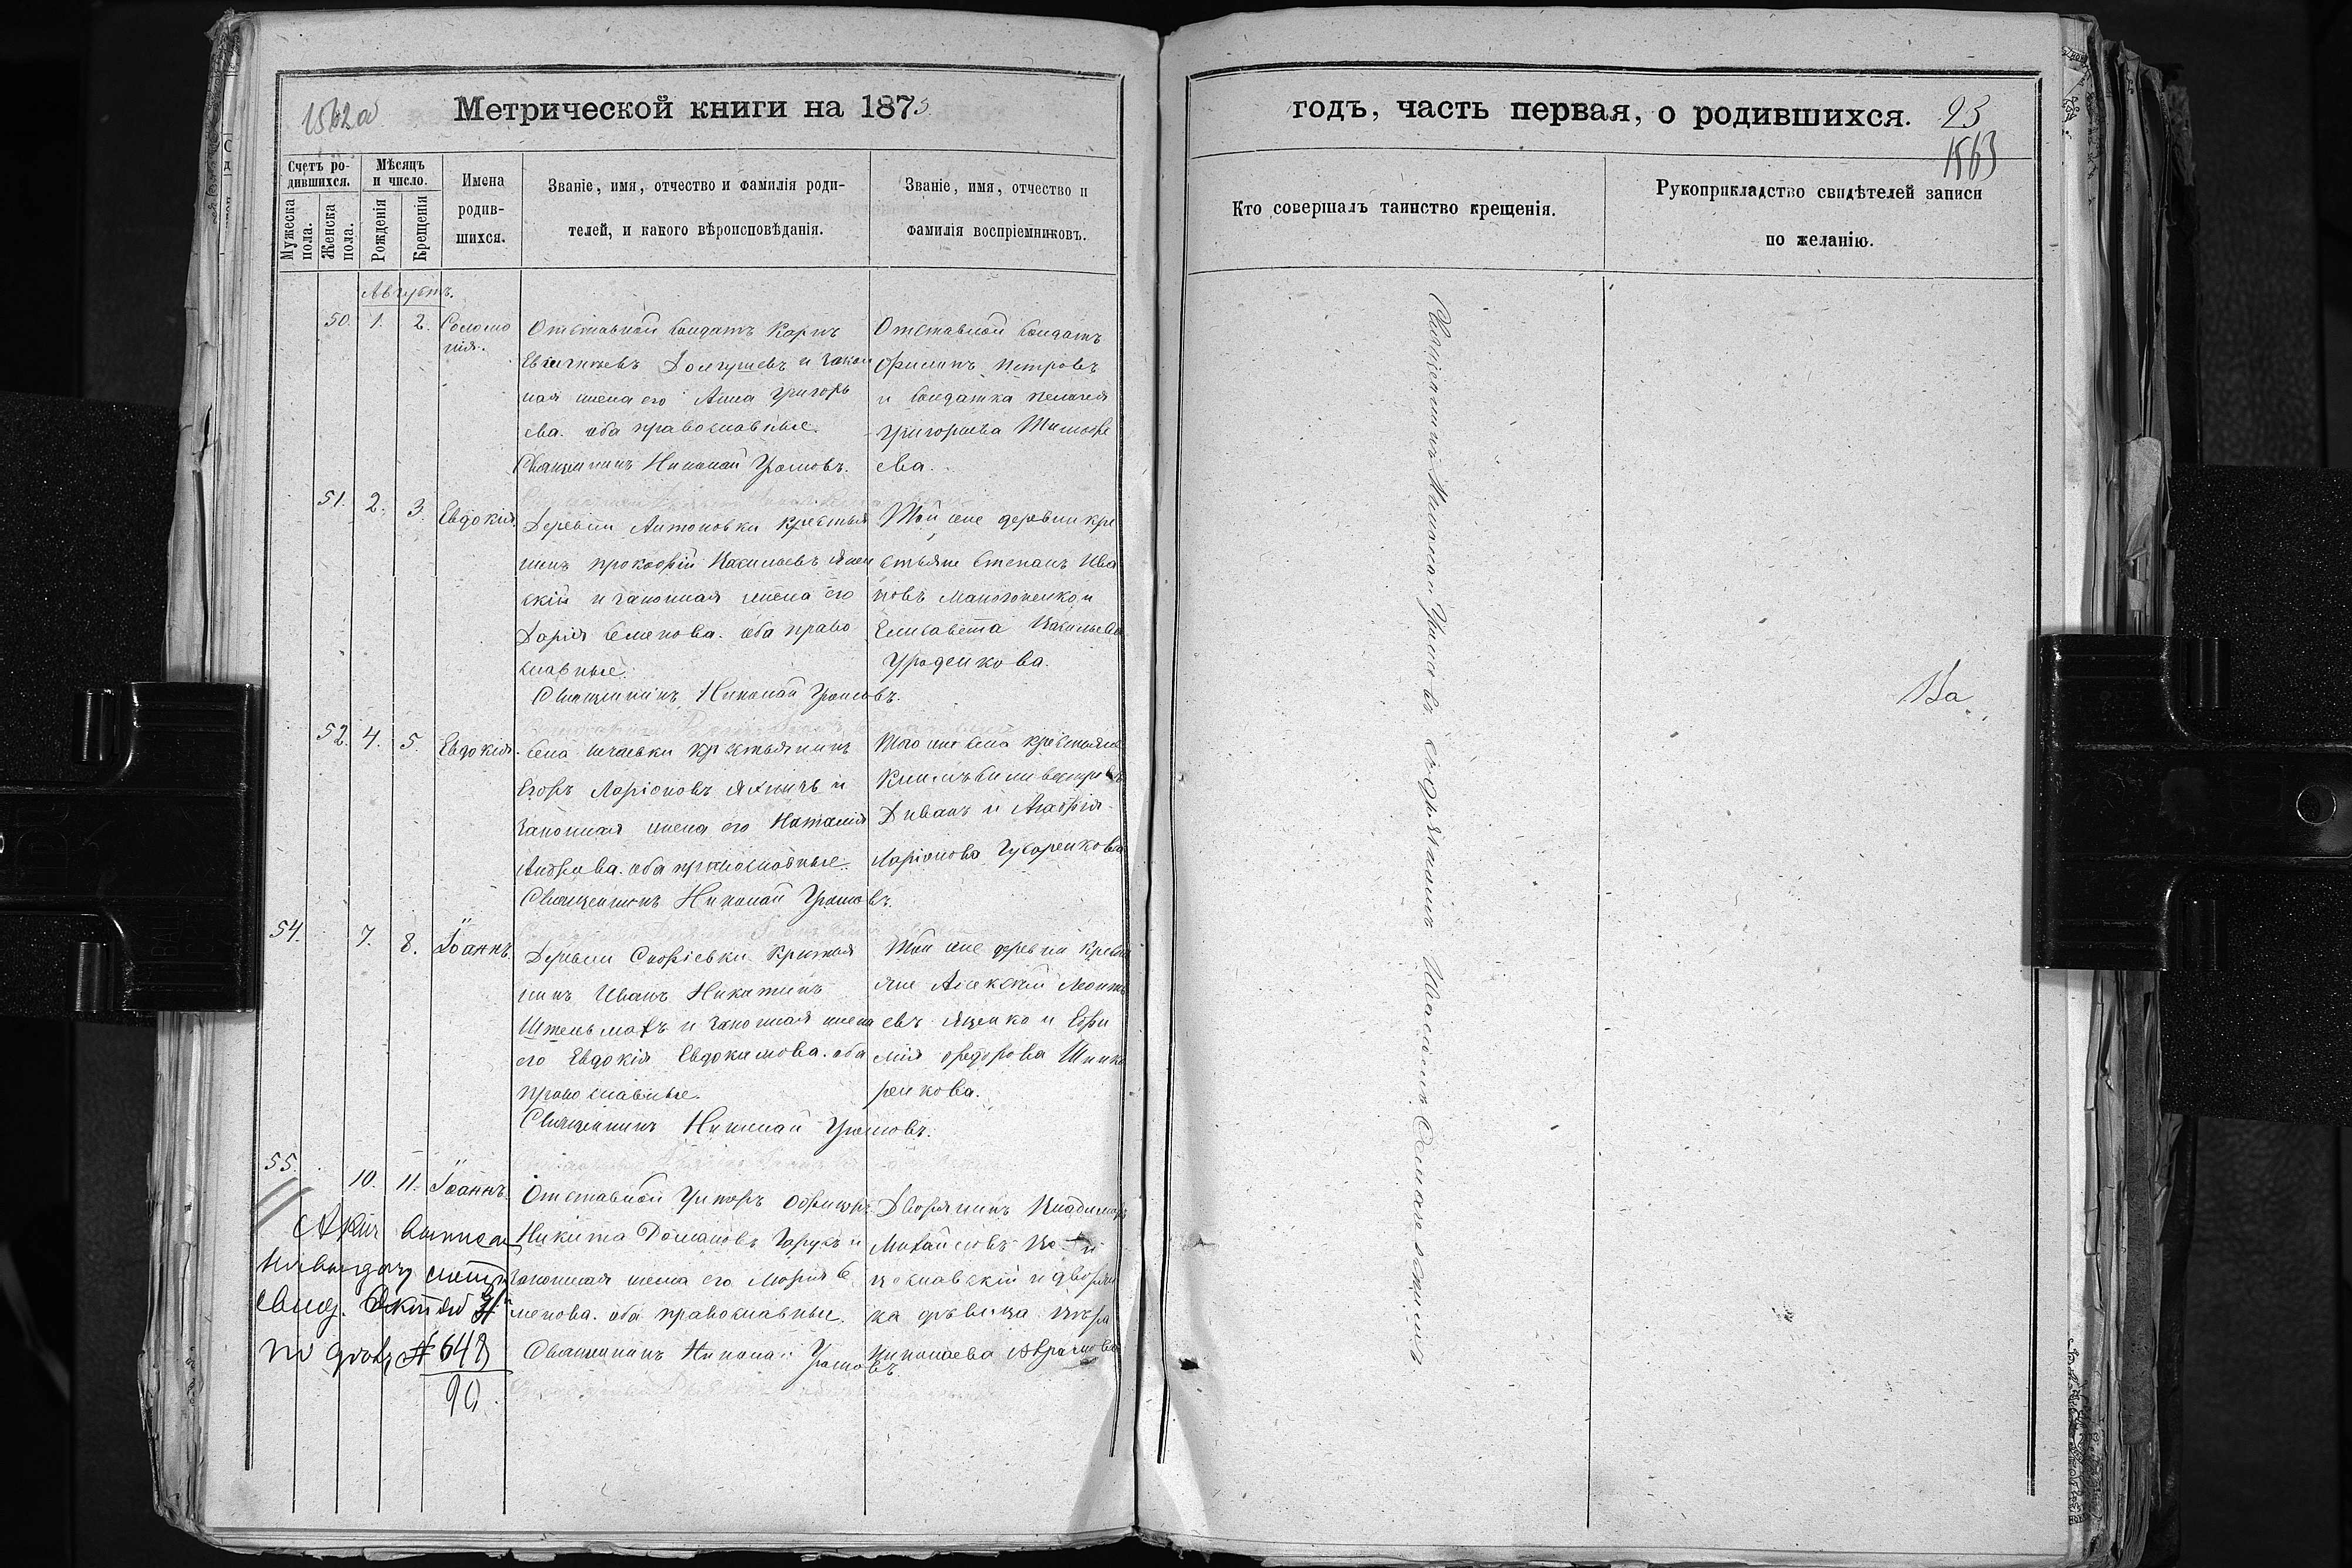 Метрической книги на 1873
1562об
годъ, часть первая, о родившихся.
23
1563
Счетъ ро-
дившихся.
Мужеска
пола.
Женска
пола.
Мѣсяцъ
и число.
Рожденія
Крещенія
Имена
родив-
шихся.
Званіе, имя, отчество и фамилія роди-
телей, и какого вѣроисповѣданія.
Званіе, имя, отчество и
фамилія воспріемниковъ.
Кто совершалъ таинство крещенія.
Рукоприкладство свидѣтелей записи
по желанію.
Августъ.
50. 1. 2. Соломо
нія.
Отставной Солдатъ Карпъ
Долгушевъ и закон
ная жена его Анна Григорь
ева. оба православные.
Священникъ Николай Громовъ.
Отставной Солдатъ
Филипъ Петровъ
и Солдатка Пелагея
Григорьева Тимофе
ева.
51. 2. 3. Евдокія.
Деревни Антоновки крестья
нинъ Прокофій Васильевъ
скій и законная жена его
Дарія Семенова. оба право
славные.
Священникъ Николай Громовъ.
Той же деревни кре
стьяне Степанъ Ива
новъ и
Елисавета Васильева
Гроденкова.
52. 4. 5. Евдокія.
Села крестьянинъ
Егоръ Ларіоновъ и
законная жена его Наталія
оба православные.
Священникъ Николай Громовъ.
Того же села крестьяне
и Агафія
Ларіонова
54. 7. 8. Іоаннъ.
Деревни Софіевки крестья
нинъ Иванъ Никитинъ
Штельмахъ и законная жена
его Евдокія Евдокимова. оба
православные.
Священникъ Николай Громовъ.
Той же деревни кресть
яне Алексѣй Леонть
евъ Яценко и Ефи
мія Федорова Шинка
ренкова.
55. 10. 11. Іоаннъ.
Отставной Унтеръ Офицеръ
Никита Романовъ и
законная жена его Марія Се
менова. оба православные.
Священникъ Николай Громовъ.
Дворянинъ Владиміръ
Михайловъ
и дворян
ка дѣвица Вѣра
Николаева Абрамова
Актъ выписан
метр
свид.
№ 648
90
Священникъ Николай Громовъ съ
Ва